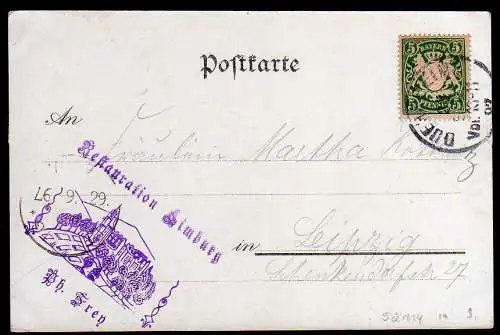 Postkarte
BAYERN
5 5
PFENNIG
An
Fräulein Martha
Restauration Limburg
26 9. 99.
in Leipzig
Schenkendorfstr 27
Ph. Frey
52114